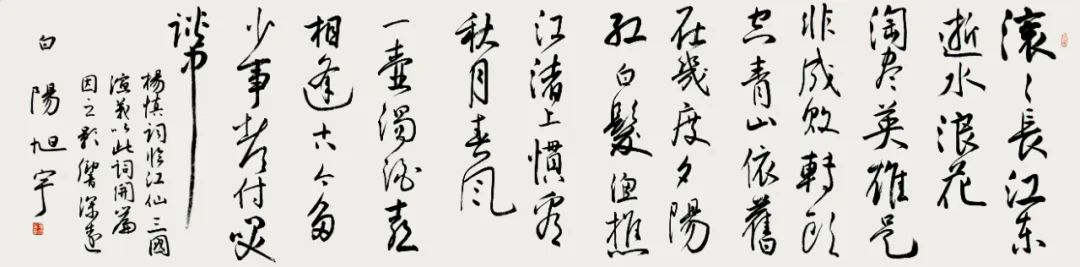 滚〻長江东
逝水浪花
淘尽英雄是
非成败轉头
空青山依舊
在幾度夕陽
红白髮渔樵
江渚上慣看
秋月春风
一壶濁酒喜
相逢古今多
少事都付笑
谈中
楊慎词临江仙三國
演義以此词開篇
因之影響深遠
白陽旭宇